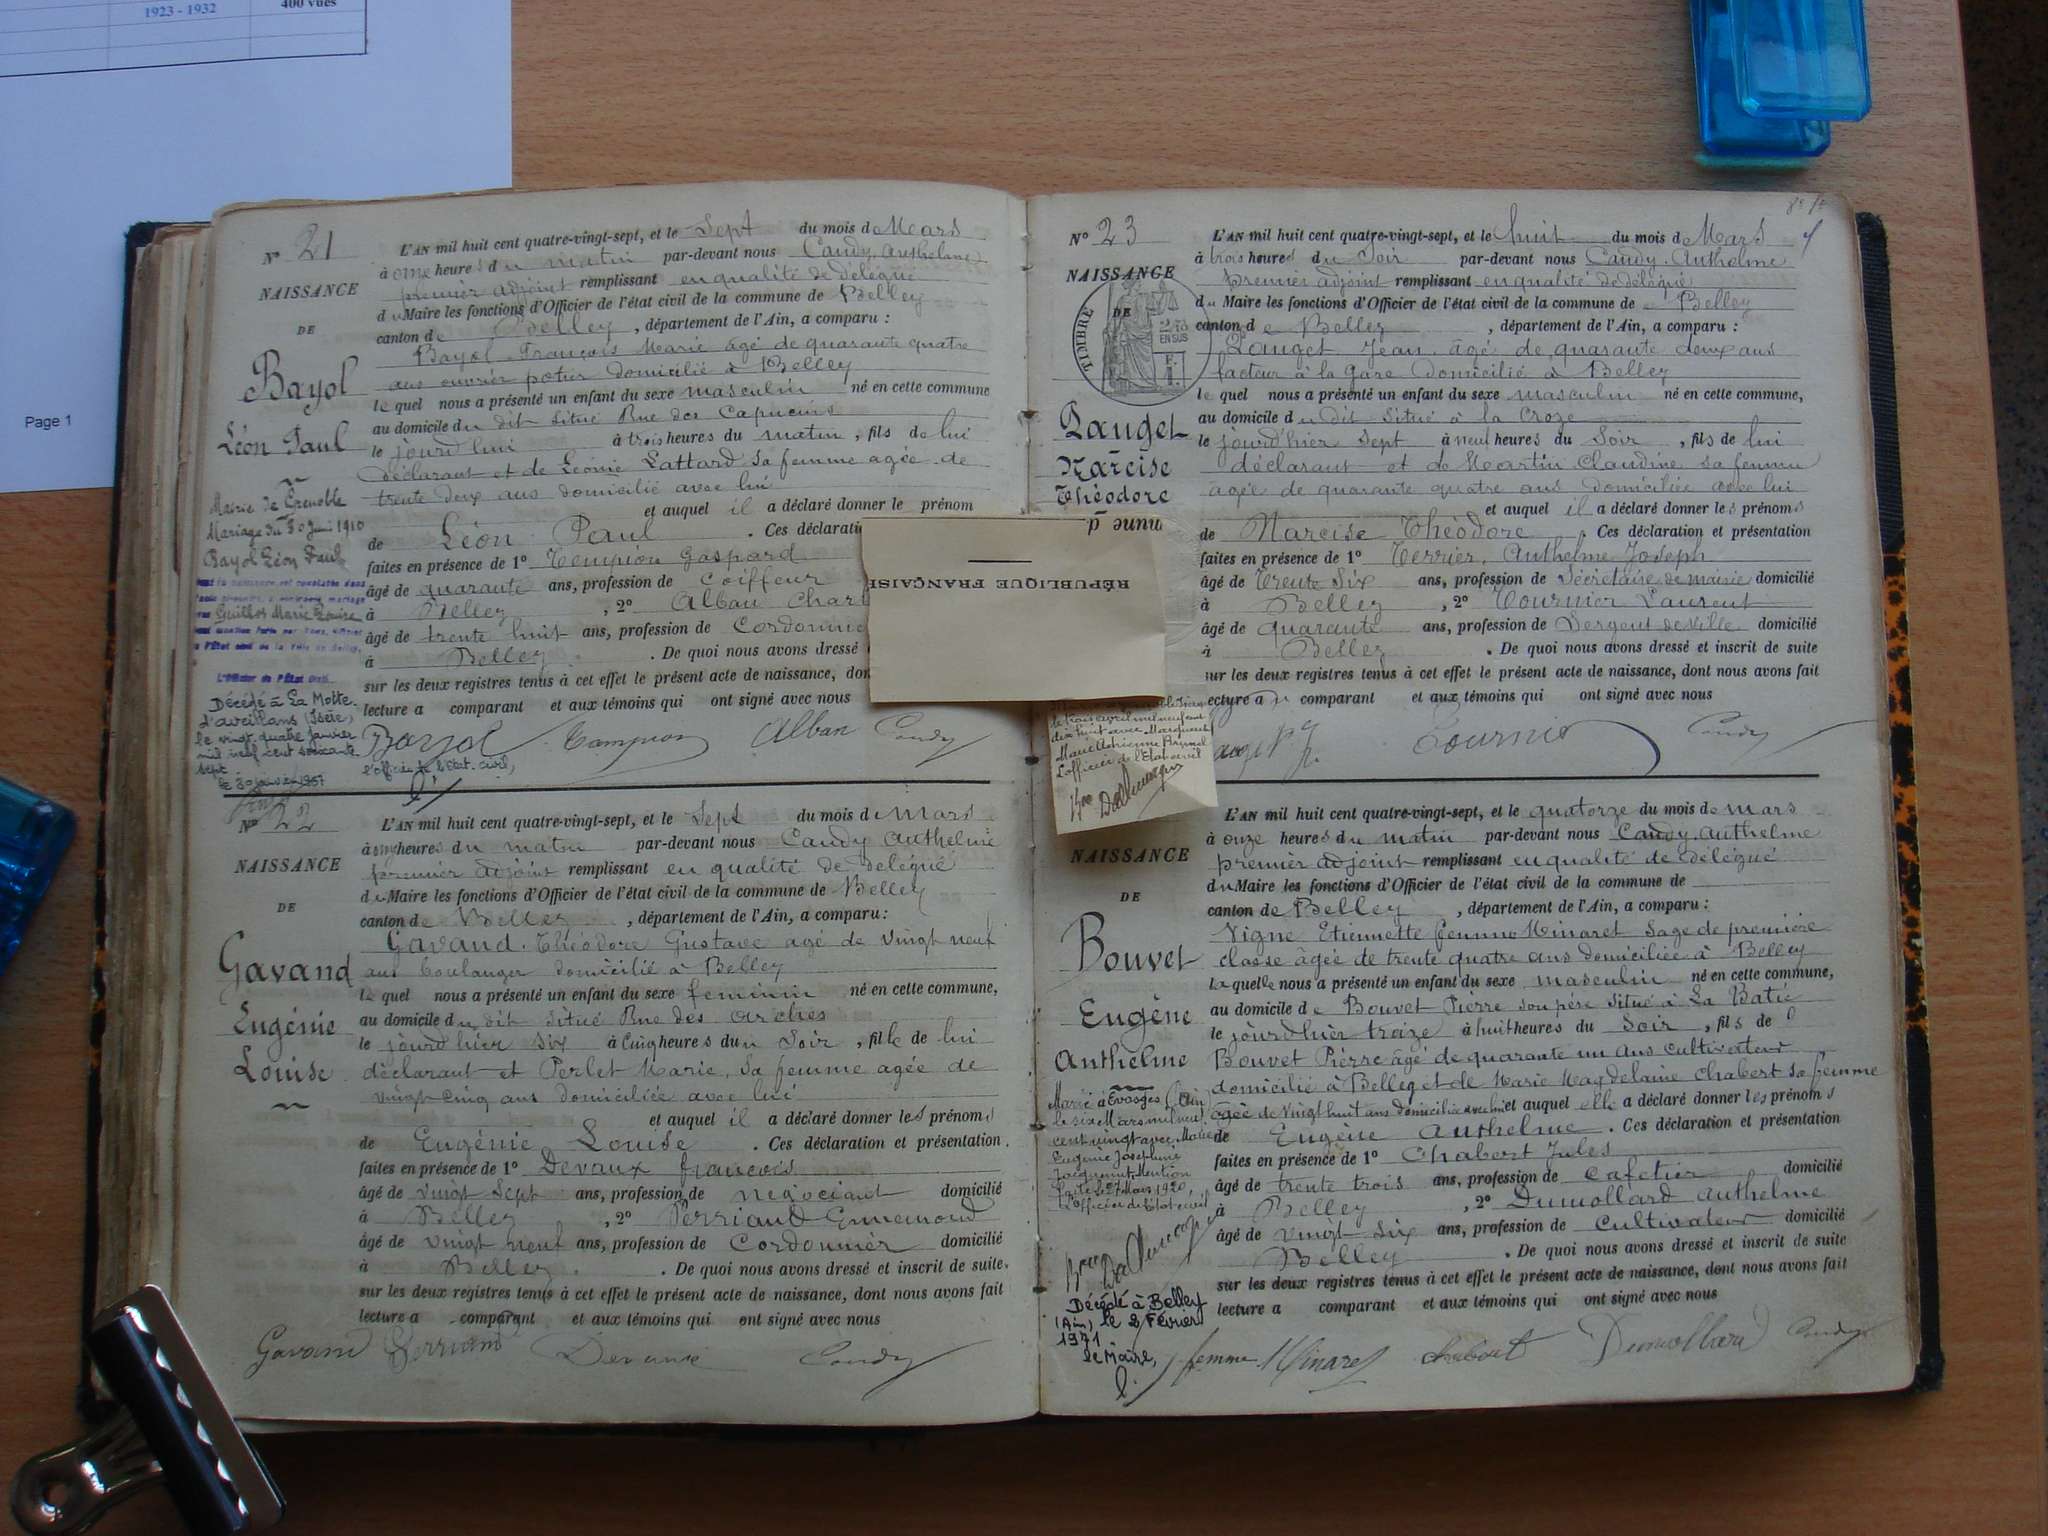 1923 - 1932
400 vues
Page 1
N° 21
NAISSANCE
DE
Bayol
Léon Paul
Mairie de Grenoble
Mariage du 30 Juin 1910
Bayol Léon Paul
Guillot Marie Louise
L'Officier de l'État Civil
Décédé à La Motte
d'aveillans (Isère)
le vingt quatre janvier
mil neuf cent soixante
sept
le 30 janvier 1967
l'officier de l'état civil,
L'AN mil huit cent quatre-vingt-sept, et le Sept du mois de Mars
à onze heures du matin par-devant nous Candy Anthelme
premier adjoint remplissant en qualité de délégué
du Maire les fonctions d'Officier de l'état civil de la commune de Belley
canton de Belley, département de l'Ain, a comparu :
Bayol François Marie âgé de quarante quatre
ans ouvrier potier domicilié à Belley
lequel nous a présenté un enfant du sexe masculin né en cette commune
au domicile du dit situé Rue des Capucins
le jourd'hui à trois heures du matin, fils de lui
déclarant et de Léonie Lattard sa femme agée de
trente deux ans domicilié avec lui
et auquel il a déclaré donner le prénom
de Léon Paul. Ces déclarati
faites en présence de 1° Tempion Gaspard
âgé de quarante ans, profession de Coiffeur
à Belley, 2° Alban Char
âgé de trente huit ans, profession de Cordonnie
à Belley. De quoi nous avons dressé
sur les deux registres tenus à cet effet le présent acte de naissance, don
lecture a comparant et aux témoins qui ont signé avec nous
Bayol Alban Candy
N° 22
NAISSANCE
DE
Gavand
Eugénie
Louise
L'AN mil huit cent quatre-vingt-sept, et le Sept du mois de mars
à onze heures du matin par-devant nous Candy Anthelme
premier adjoint remplissant en qualité de délégué
du Maire les fonctions d'Officier de l'état civil de la commune de Belley
canton de Belley, département de l'Ain, a comparu :
Gavand Théodore Gustave agé de vingt neuf
ans boulanger domicilié à Belley
lequel nous a présenté un enfant du sexe feminin né en cette commune,
au domicile du dit situé Rue des arches
le jourd'hier six à Cinq heures du Soir, fille de lui
déclarant et Perlet Marie, sa femme agée de
vingt cinq ans domiciliée avec lui
et auquel il a déclaré donner les prénoms
de Eugénie Louise. Ces déclaration et présentation
faites en présence de 1° Devaux françois
âgé de vingt Sept ans, profession de négociant domicilié
à Belley, 2° Perriand Ennemond
âgé de vingt neuf ans, profession de Cordonnier domicilié
à Belley. De quoi nous avons dressé et inscrit de suite,
sur les deux registres tenus à cet effet le présent acte de naissance, dont nous avons fait
lecture a comparant et aux témoins qui ont signé avec nous
Gavand Perriand Devaux Candy
RÉPUBLIQUE FRANÇAISE
N° 23
NAISSANCE
DE
TIMBRE
2/10 EN SUS
Narcise
Théodore
Marie Adrienne Brunel
L'officier de l'Etat civil
L'AN mil huit cent quatre-vingt-sept, et le huit du mois de Mars
à trois heures du Soir par-devant nous Candy Anthelme
premier adjoint remplissant en qualité de délégué
du Maire les fonctions d'Officier de l'état civil de la commune de Belley
canton de Belley, département de l'Ain, a comparu :
Jean âgé de quarante deux ans
facteur à la gare domicilié à Belley
lequel nous a présenté un enfant du sexe masculin né en cette commune,
au domicile du dit situé à la Croze
le jourd'hier sept à neuf heures du Soir, fils de lui
déclarant et de Martin Claudine sa femme
agée de quarante quatre ans domiciliée avec lui
et auquel il a déclaré donner les prénoms
de Narcise Théodore. Ces déclaration et présentation
faites en présence de 1° Terrier, Anthelme Joseph
âgé de trente Six ans, profession de Sécrétaire de mairie domicilié
à Belley, 2° Tournier Laurent
âgé de quarante ans, profession de Sergent de ville domicilié
à Belley. De quoi nous avons dressé et inscrit de suite
sur les deux registres tenus à cet effet le présent acte de naissance, dont nous avons fait
lecture a comparant et aux témoins qui ont signé avec nous
Tournier Candy
NAISSANCE
DE
Bouvet
Eugène
Anthelme
Marié à Evosges (Ain)
le six Mars mil neuf
cent vingt avec Marie
Eugénie Joséphine
Jacquemet Mention
faite le 27 Mars 1920,
L'officier de l'état civil
Décédé à Belley
(Ain) le 2 Février
1971
le Maire,
L'AN mil huit cent quatre-vingt-sept, et le quatorze du mois de mars
à onze heures du matin par-devant nous Candy Anthelme
premier adjoint remplissant en qualité de délégué
du Maire les fonctions d'Officier de l'état civil de la commune de
canton de Belley, département de l'Ain, a comparu :
Vigne Etiennette femme Minaret Sage de première
classe âgée de trente quatre ans domiciliée à Belley
laquelle nous a présenté un enfant du sexe masculin né en cette commune,
au domicile de Bouvet Pierre son père situé à La Batie
le jourd'hier treize à huit heures du Soir, fils de
Bouvet Pierre âgé de quarante un ans cultivateur
domicilié à Belley et de Marie Magdelaine Chabert sa femme
âgée de vingt huit ans domiciliée avec lui et auquel elle a déclaré donner les prénoms
de Eugène Anthelme. Ces déclaration et présentation
faites en présence de 1° Chabert Jules
âgé de trente trois ans, profession de cafetier domicilié
à Belley, 2° Dumollard Anthelme
âgé de vingt six ans, profession de Cultivateur domicilié
Belley. De quoi nous avons dressé et inscrit de suite
sur les deux registres tenus à cet effet le présent acte de naissance, dont nous avons fait
lecture a comparant et aux témoins qui ont signé avec nous
femme Minaret Chabert Dumollard Candy